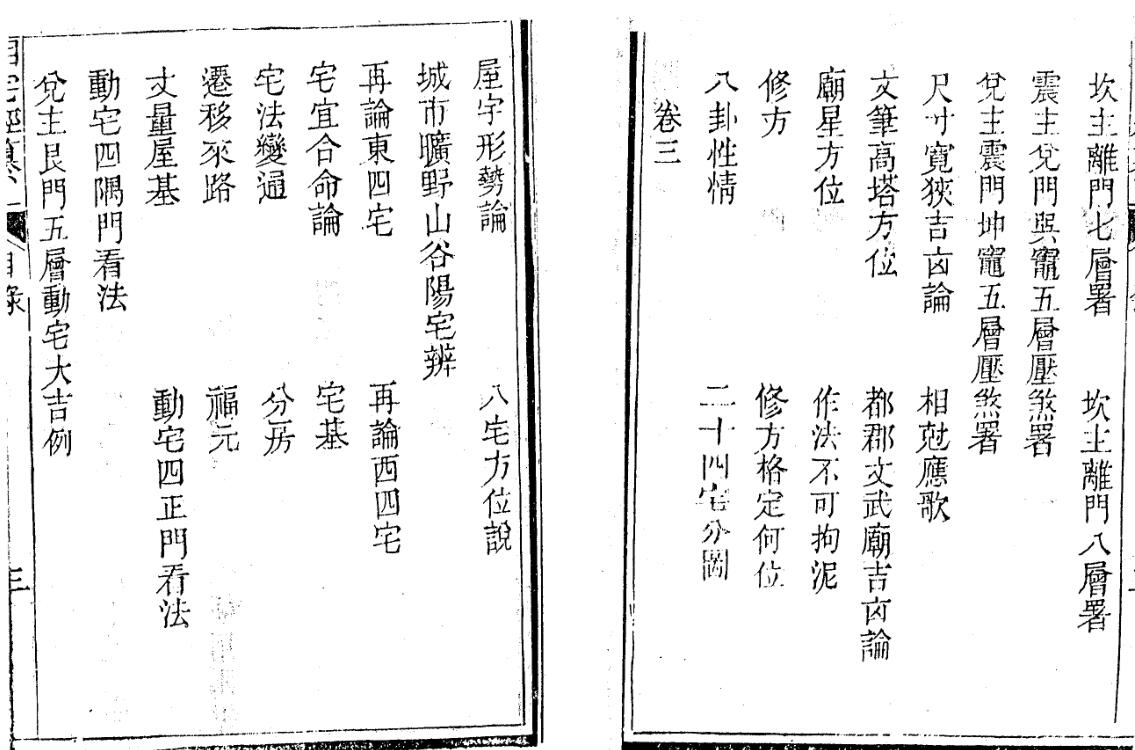 坎主離門七層署　坎主離門八層署
震主兌門與竈五層壓煞署
兌主震門坤竈五層壓煞署
尺寸寬狹吉凶論　相尅應歌
文筆高塔方位　都郡文武廟吉凶論
廟星方位　作法不可拘泥
修方　修方格定何位
八卦性情　二十四宅分圖
卷三
屋宇形勢論　八宅方位說
城市曠野山谷陽宅辨
再論東四宅　再論西四宅
宅宜合命論　宅基
宅法變通　分房
遷移來路　福元
丈量屋基　動宅四正門看法
動宅四隅門看法
兌主艮門五層動宅大吉例
相宅經纂　目錄　三